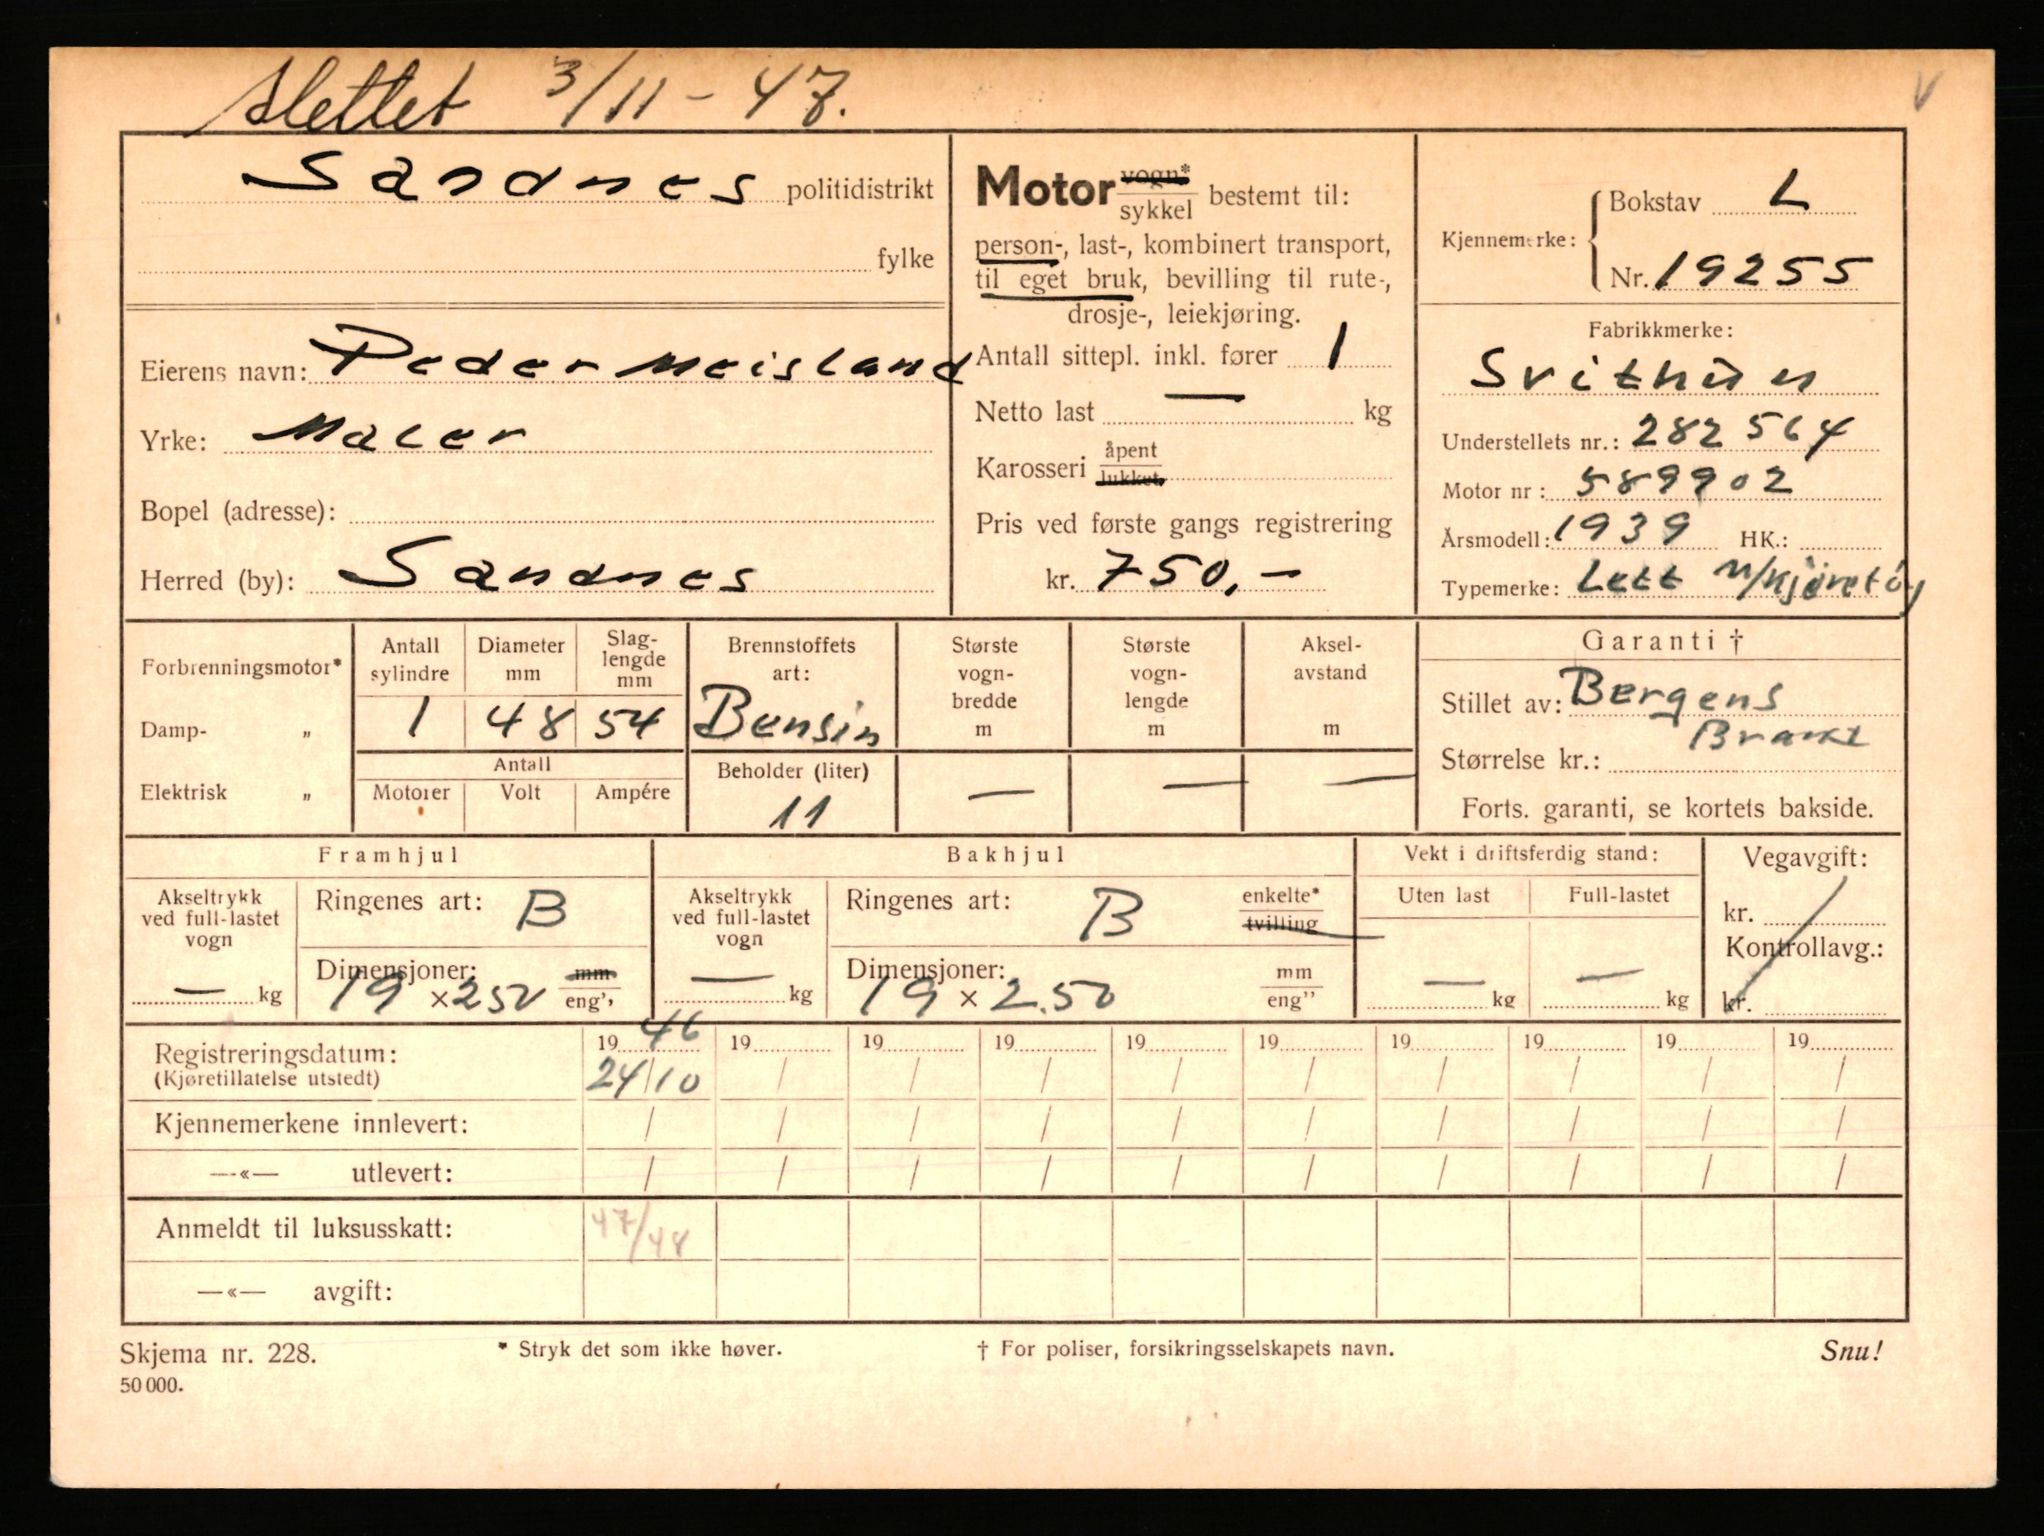 Slettet 3/11-47.
Sandnes politidistrikt
fylke
Eierens navn: Peder Meisland
Yrke: Maler
Bopel (adresse):
Herred (by): Sandnes
Motor vogn*
sykkel bestemt til:
person-, last-, kombinert transport,
til eget bruk, bevilling til rute-,
drosje-, leiekjøring.
Antall sittepl. inkl. fører 1
Netto last — kg
Karosseri åpent
lukket
Pris ved første gangs registrering
kr. 750,-
Kjennemerke: Bokstav L
Nr. 19255
Fabrikkmerke:
Svithun
Understellets nr.: 282564
Motor nr: 589902
Årsmodell: 1939 HK.:
Typemerke: Lett m/kjøretøy
Forbrenningsmotor*
Damp- „
Elektrisk „
Antall sylindre
Diameter mm
Slag-lengde mm
1 48 54
Antall
Motorer Volt Ampére
Brennstoffets art:
Bensin
Beholder (liter)
11
Største vogn-bredde m
—
Største vogn-lengde m
—
Aksel-avstand m
—
Garanti †
Stillet av: Bergens
Brann
Størrelse kr.:
Forts. garanti, se kortets bakside.
Framhjul
Akseltrykk ved full-lastet vogn
— kg
Ringenes art: B
Dimensjoner: mm
19 × 250 eng''
Bakhjul
Akseltrykk ved full-lastet vogn
— kg
Ringenes art: B enkelte*
tvilling
Dimensjoner: mm
19 × 2.50 eng''
Vekt i driftsferdig stand:
Uten last Full-lastet
— kg — kg
Vegavgift:
kr. /
Kontrollavg.:
kr. /
Registreringsdatum: 1946 19 19 19 19 19 19 19 19 19
(Kjøretillatelse utstedt) 24/10 / / / / / / / / /
Kjennemerkene innlevert: / / / / / / / / / /
—«— utlevert: / / / / / / / / / /
Anmeldt til luksusskatt: 47/48
—«— avgift:
Skjema nr. 228. * Stryk det som ikke høver. † For poliser, forsikringsselskapets navn. Snu!
50 000.